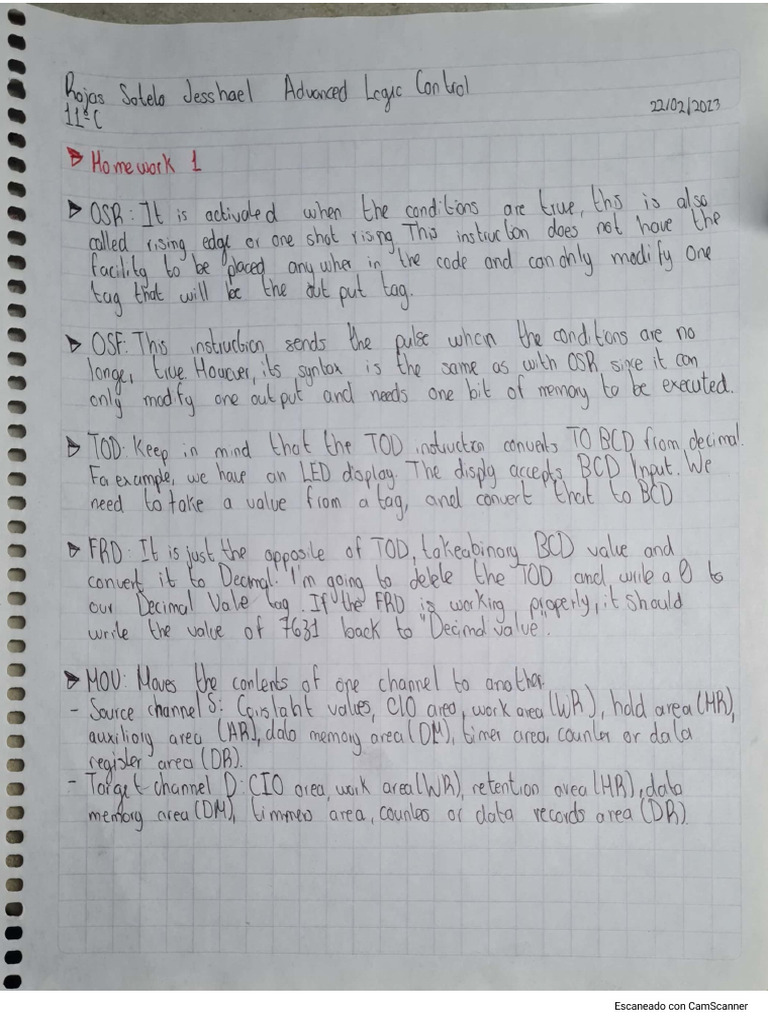 Rojas Sotelo Jesshael Advanced Logic Control
11°C
22/02/2023
Homework 1
OSR: It is activated when the conditions are true, this is also
called rising edge or one shot rising. This instruction does not have the
facility to be placed any wher in the code and can only modify one
tag that will be the out put tag.
OSF: This instruction sends the pulse when the conditions are no
longer true. However, its syntax is the same as with OSR since it can
only modify one output and needs one bit of memory to be executed.
TOD: Keep in mind that the TOD instruction converts TO BCD from decimal.
For example, we have an LED display. The disply accepts BCD Input. We
need to take a value from a tag, and convert that to BCD
FRD: It is just the opposite of TOD, take a binary BCD value and
convert it to Decimal. I'm going to delete the TOD and write a 0 to
our Decimal Vale tag. If the FRD is working properly, it should
write the value of 7631 back to "Decimal value".
MOV: Moves the contents of one channel to another.
- Source channel S: Constant values, CIO area, work area (WR), hold area (HR),
auxiliary area (AR), data memory area (DM), timer area, counter or data
register area (DR).
- Target channel D: CIO area, work area (WR), retention area (HR), data
memory area (DM), timmers area, counters or data records area (DR).
Escaneado con CamScanner